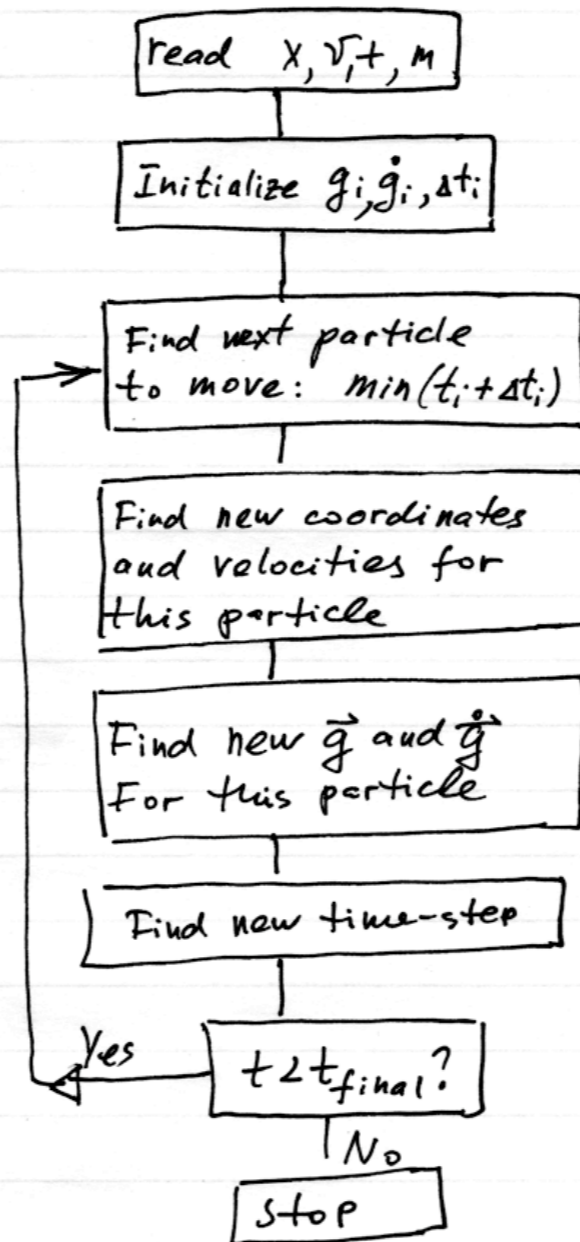 read x, v, t, m
Initialize gᵢ, ġᵢ, Δtᵢ
Find next particle
to move: min(tᵢ + Δtᵢ)
Find new coordinates
and velocities for
this particle
Find new g⃗ and ġ⃗
For this particle
Find new time-step
Yes
t < t_final?
No
stop